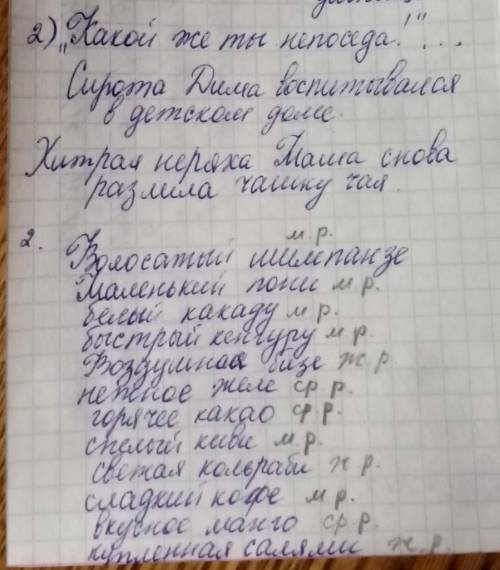 2) „Какой же ты непоседа!“...
Сирота Дима воспитывался
в детском доме.
Хитрая неряха Маша снова
разлила чашку чая.
2.
м.р.
Волосатый шимпанзе
Маленький пони м.р.
белый какаду м.р.
быстрый кенгуру м.р.
Воздушная безе ж.р.
нежное желе ср.р.
горячее какао ср.р.
спелый киви м.р.
свежая кольраби ж.р.
сладкий кофе м.р.
вкусное манго ср.р.
купленная салями ж.р.